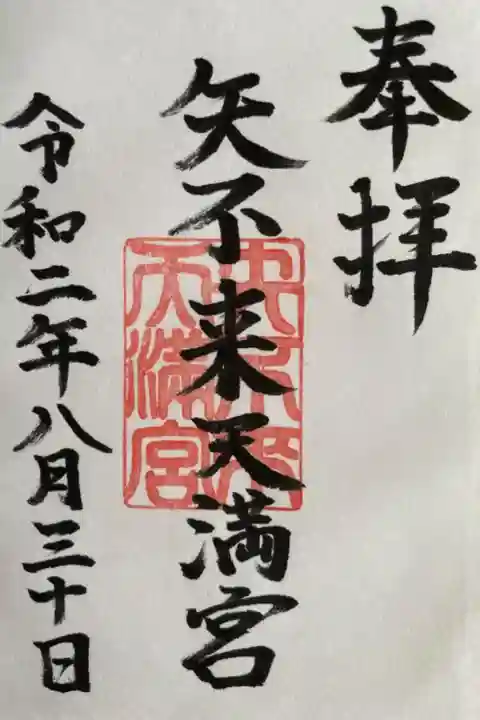 奉拝
矢不来天満宮
矢不来
天満宮
令和二年八月三十日